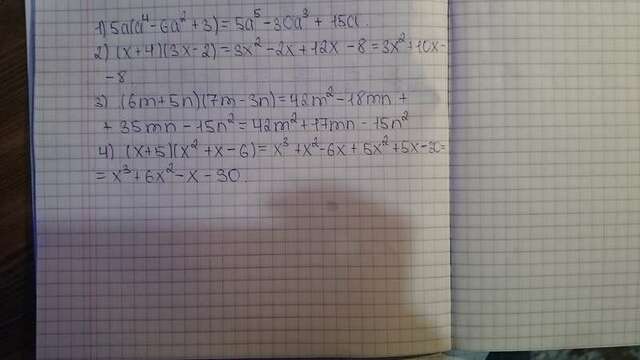 1) 5a(a⁴ - 6a² + 3) = 5a⁵ - 30a³ + 15a.
2) (x+4)(3x-2) = 3x² - 2x + 12x - 8 = 3x² + 10x -
- 8
3) (6m+5n)(7m-3n) = 42m² - 18mn +
+ 35mn - 15n² = 42m² + 17mn - 15n²
4) (x+5)(x² + x - 6) = x³ + x² - 6x + 5x² + 5x - 30 =
= x³ + 6x² - x - 30.